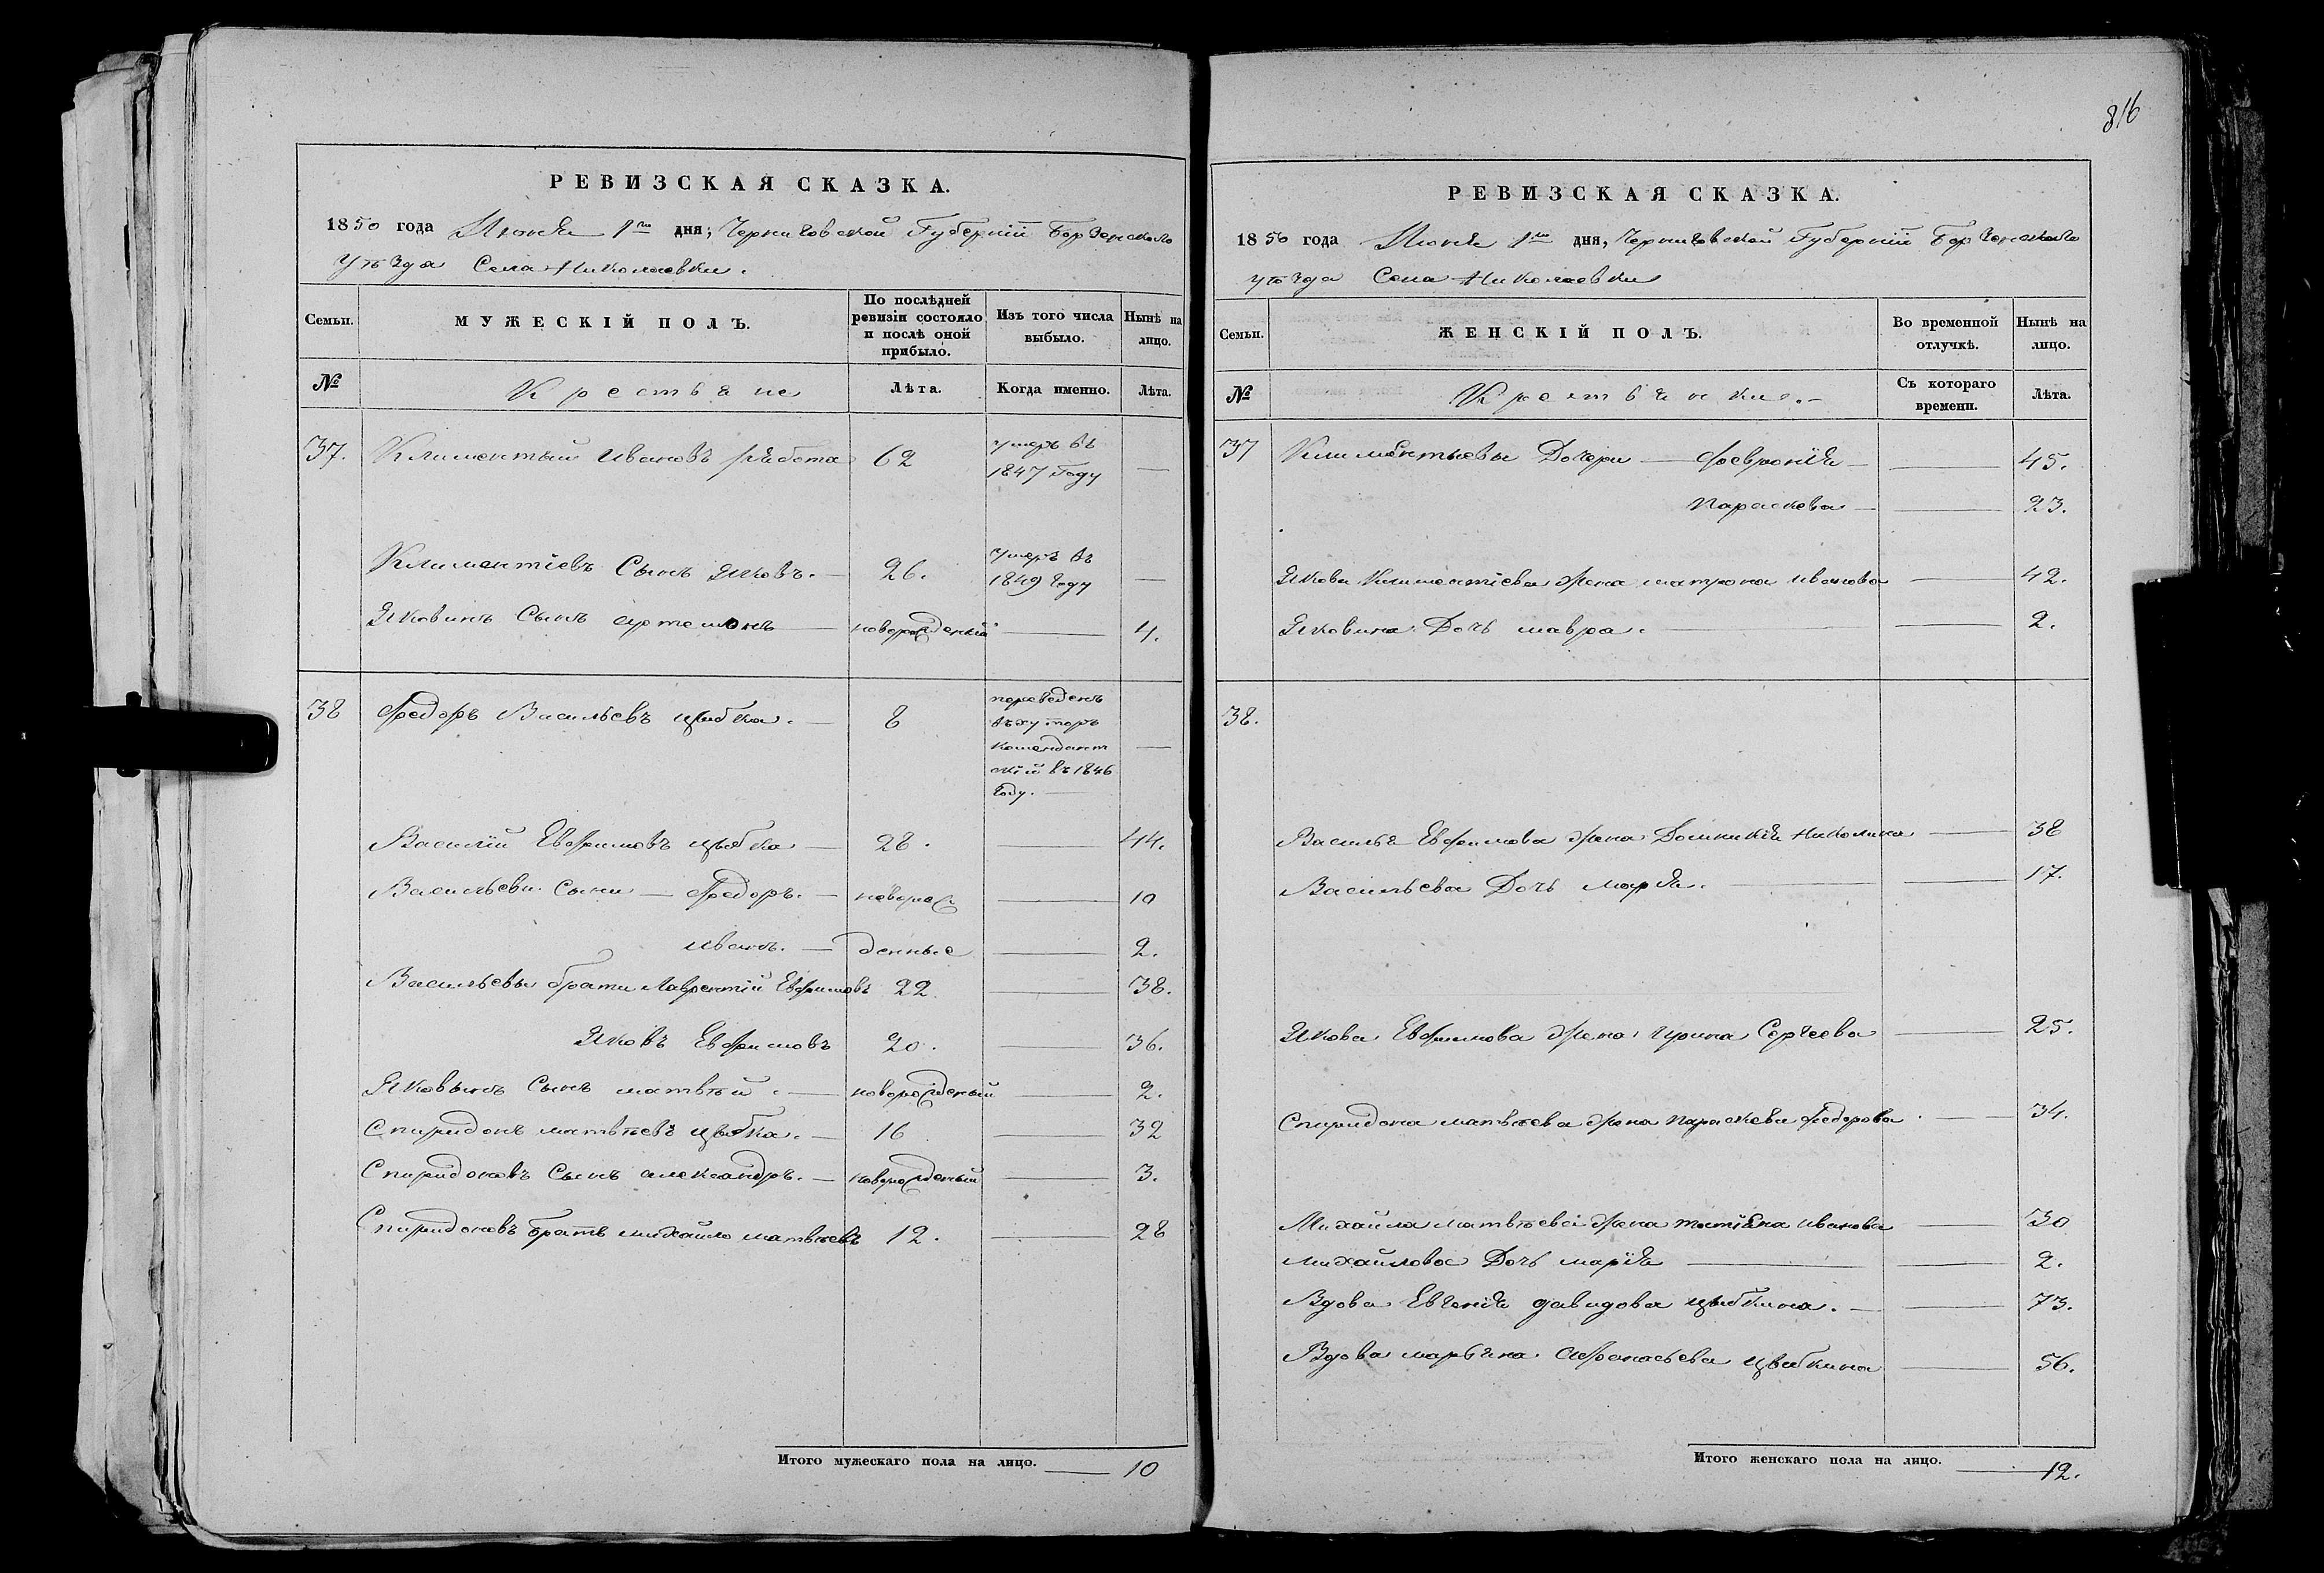 РЕВИЗСКАЯ СКАЗКА.
1850 года Июня 1го дня, Черниговской Губерніи Борзенскаго
уѣзда Села Николаевки.
Семьи.
МУЖЕСКІЙ ПОЛЪ.
По послѣдней ревизіи состояло и послѣ оной прибыло.
Изъ того числа выбыло.
Нынѣ на лицо.
№
Крестьяне
Лѣта.
Когда именно.
Лѣта.
37. Климентий Ивановъ Рябота 62 умеръ въ 1847 Году —
Климентіевъ Сынъ Яковъ. — 26. умеръ въ 1849 Году —
Яковинъ Сынъ Артемонъ — новорожденный — 4.
38 Федоръ Васильевъ Цыбка. — 8 переведенъ въ хуторъ Комендантскій въ 1846 Году. —
Василій Евфимовъ Цыбка — 28. 44.
Васильеви Сыни — Федоръ. — новорож — 10
Иванъ. — денные — 2.
Васильевы брати Лаврентій Евфимовъ 22 — 38.
Яковъ Евфимовъ 20. — 36.
Яковынъ Сынъ Матвѣй. — новорожденный — 2.
Спиридонъ Матвѣевъ Цыбка. — 16 — 32
Спиридоновъ Сынъ Александръ. — новорожденный — 3.
Спиридоновъ братъ Михайло Матвѣевъ 12. — 28
Итого мужескаго пола на лицо. — 10
816
РЕВИЗСКАЯ СКАЗКА.
1850 года Июня 1го дня, Черниговской Губерніи Борзенскаго
уѣзда Села Николаевки
Семьи.
ЖЕНСКІЙ ПОЛЪ.
Во временной отлучкѣ.
Нынѣ на лицо.
№
Крестьянки. —
Съ котораго времени.
Лѣта.
37 Климентьевы Дочери — Февронія — — 45.
Параскева — — 23.
Якова Климентіева жена Матрона Иванова — 42.
Яковина Дочь Мавра. — — 2.
38.
Василья Евфимова жена Домникія Николина — 38
Васильева Дочь Марія. — — 17.
Якова Евфимова жена Ирина Сергеева — 25.
Спиридона Матвѣева жена Параскева Федорова. — 34.
Михайла Матвѣева жена Татіяна Иванова — 30
Михайлова Дочь Марія — — 2.
Вдова Евгенія Давидова Цыбкина. — — 73.
Вдова Марьяна Афанасьева Цыбкина — 56.
Итого женскаго пола на лицо. — 12.